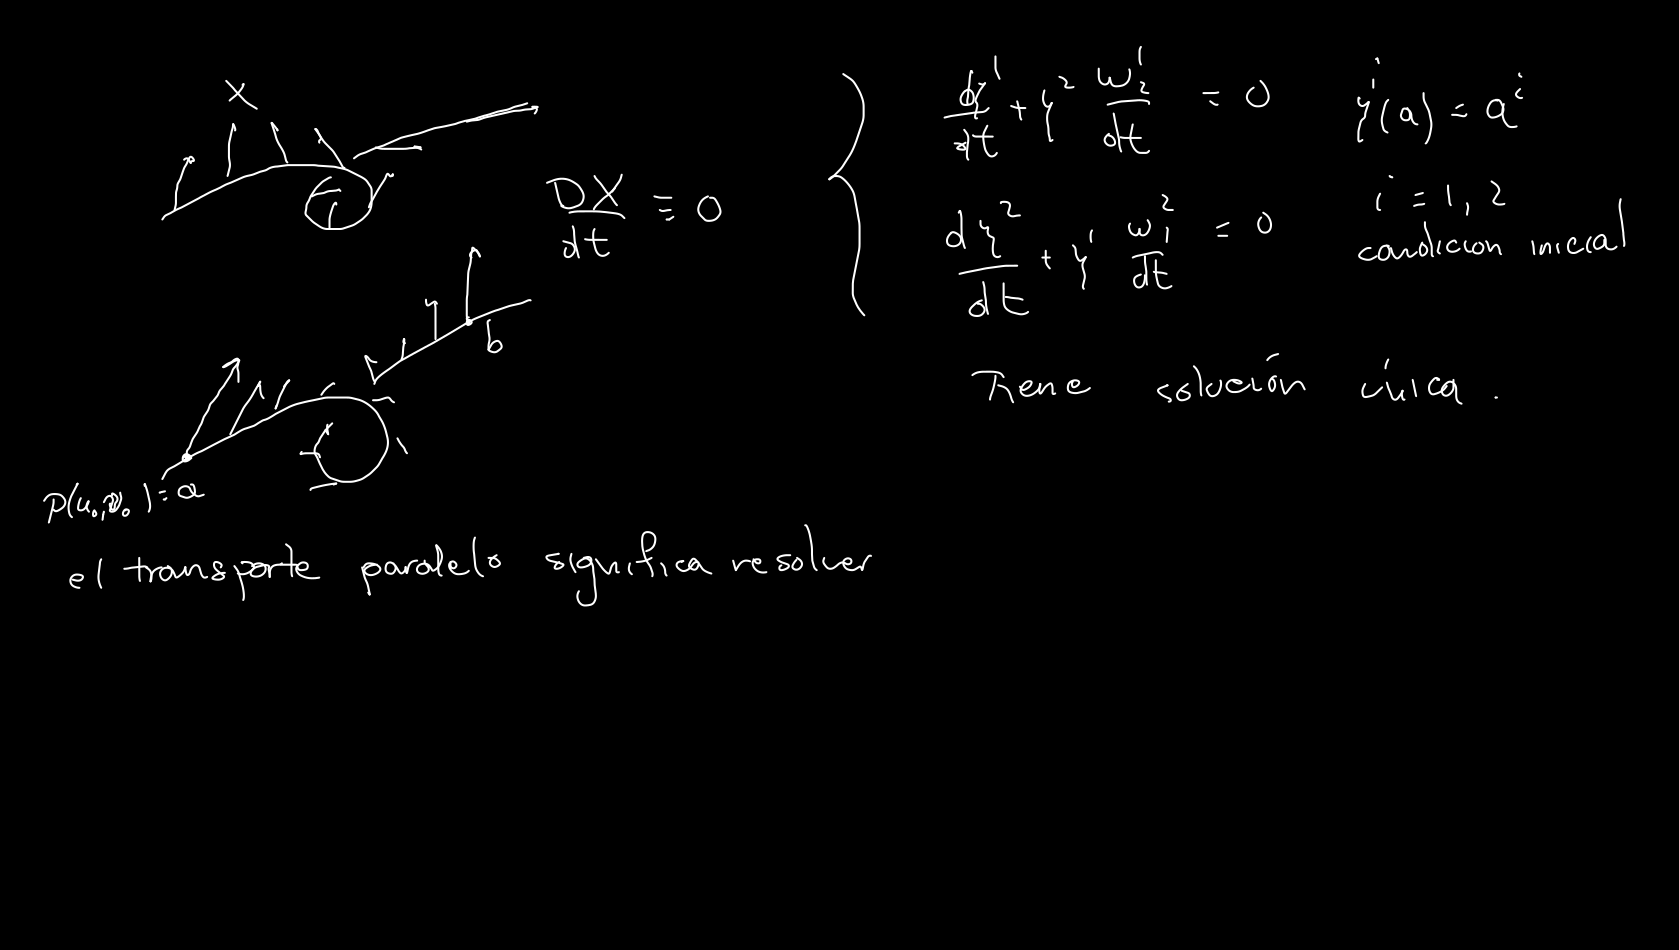 X
DX/dt ≡ 0
b
p(u₀,v₀) = a
el transporte paralelo significa resolver
dη¹/dt + η² ω¹₂/dt = 0 ηⁱ(a) = aⁱ
i = 1, 2
dη²/dt + η¹ ω²₁/dt = 0
condicion inicial
Tiene solución única.